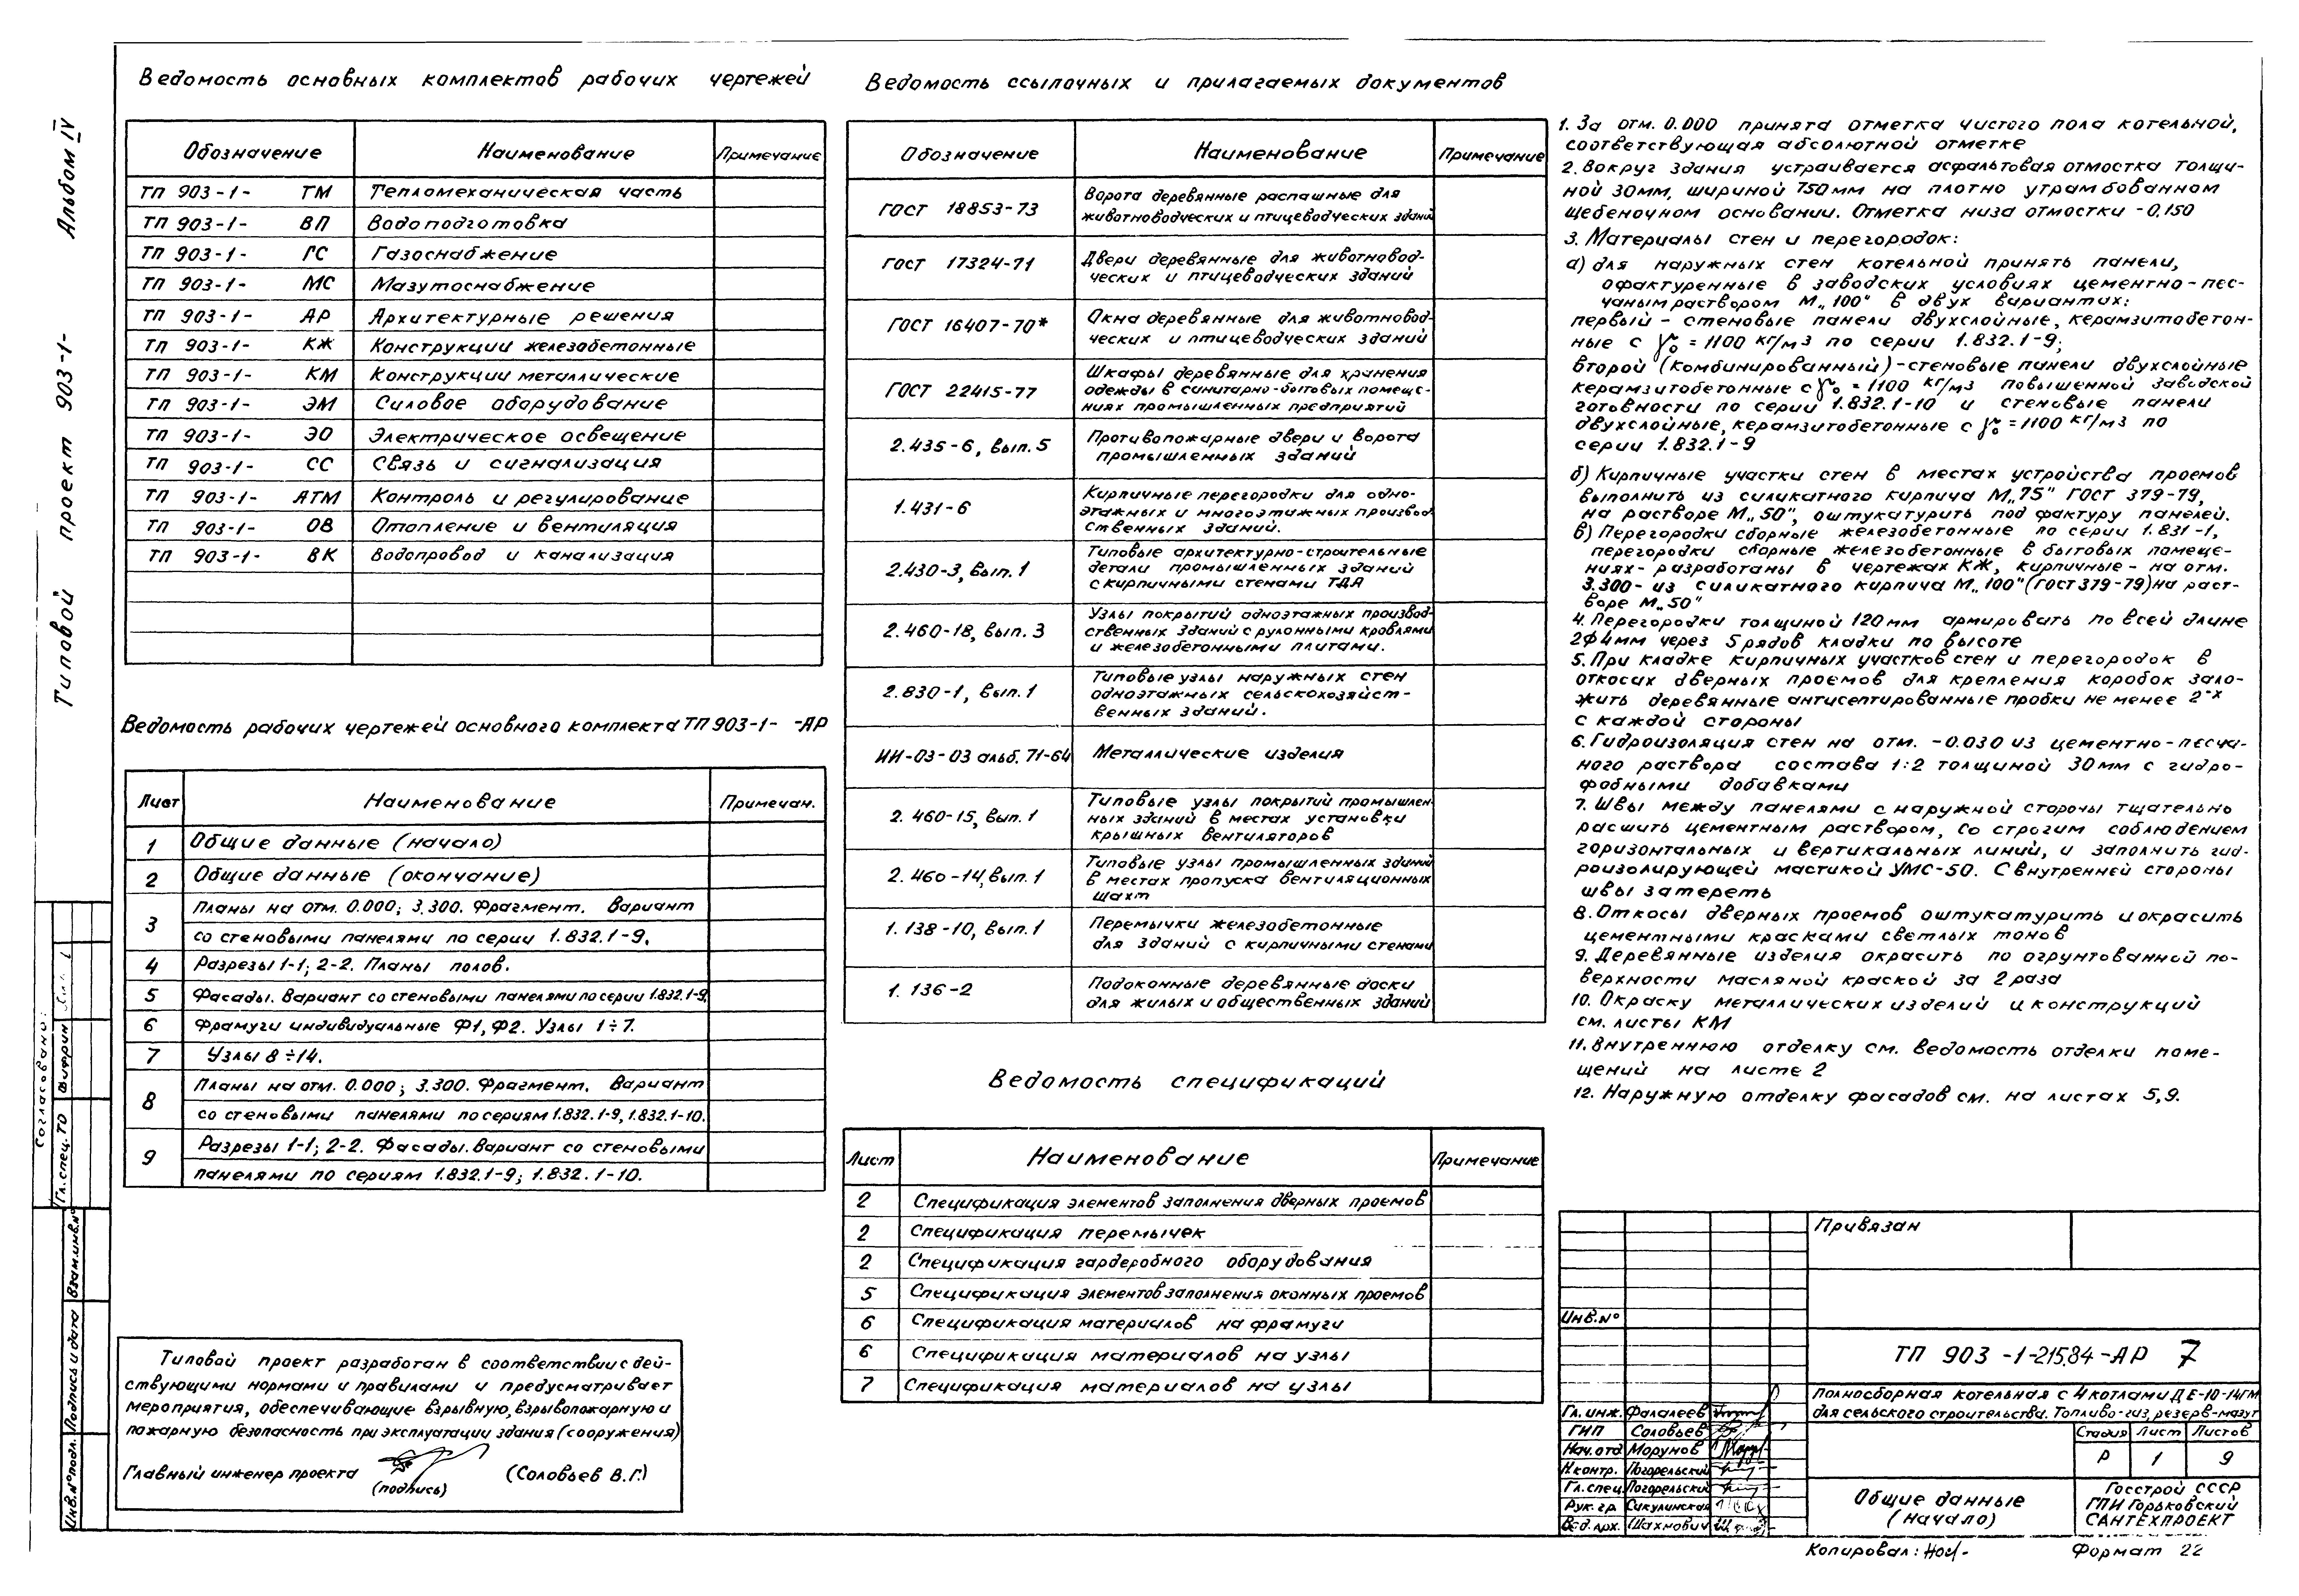 Альбом IV
Типовой проект 903-1-
Согласовано:
Гл.спец.ТО Вифрин
Инв.№подл. Подпись и дата Взам.инв.№
Ведомость основных комплектов рабочих чертежей
Обозначение Наименование Примечание
ТП 903-1- ТМ Тепломеханическая часть
ТП 903-1- ВП Водоподготовка
ТП 903-1- ГС Газоснабжение
ТП 903-1- МС Мазутоснабжение
ТП 903-1- АР Архитектурные решения
ТП 903-1- КЖ Конструкции железобетонные
ТП 903-1- КМ Конструкции металлические
ТП 903-1- ЭМ Силовое оборудование
ТП 903-1- ЭО Электрическое освещение
ТП 903-1- СС Связь и сигнализация
ТП 903-1- АТМ Контроль и регулирование
ТП 903-1- ОВ Отопление и вентиляция
ТП 903-1- ВК Водопровод и канализация
Ведомость рабочих чертежей основного комплекта ТП 903-1- -АР
Лист Наименование Примечан.
1 Общие данные (начало)
2 Общие данные (окончание)
3 Планы на отм. 0.000; 3.300. Фрагмент. Вариант
со стеновыми панелями по серии 1.832.1-9.
4 Разрезы 1-1; 2-2. Планы полов.
5 Фасады. Вариант со стеновыми панелями по серии 1.832.1-9.
6 Фрамуги индивидуальные Ф1, Ф2. Узлы 1÷7.
7 Узлы 8÷14.
8 Планы на отм. 0.000; 3.300. Фрагмент. Вариант
со стеновыми панелями по сериям 1.832.1-9, 1.832.1-10.
9 Разрезы 1-1; 2-2. Фасады. Вариант со стеновыми
панелями по сериям 1.832.1-9; 1.832.1-10.
Типовой проект разработан в соответствии с дей-
ствующими нормами и правилами и предусматривает
мероприятия, обеспечивающие взрывную, взрывопожарную и
пожарную безопасность при эксплуатации здания (сооружения)
Главный инженер проекта (Соловьев В.Г.)
(подпись)
Ведомость ссылочных и прилагаемых документов
Обозначение Наименование Примечание
ГОСТ 18853-73 Ворота деревянные распашные для
животноводческих и птицеводческих зданий
ГОСТ 17324-71 Двери деревянные для животновод-
ческих и птицеводческих зданий
ГОСТ 16407-70* Окна деревянные для животновод-
ческих и птицеводческих зданий
ГОСТ 22415-77 Шкафы деревянные для хранения
одежды в санитарно-бытовых помеще-
ниях промышленных предприятий
2.435-6, вып.5 Противопожарные двери и ворота
промышленных зданий
1.431-6 Кирпичные перегородки для одно-
этажных и многоэтажных производ
ственных зданий.
2.430-3, вып.1 Типовые архитектурно-строительные
детали промышленных зданий
с кирпичными стенами ТДА
2.460-18, вып.3 Узлы покрытий одноэтажных производ-
ственных зданий с рулонными кровлями
и железобетонными плитами.
2.830-1, вып.1 Типовые узлы наружных стен
одноэтажных сельскохозяйст-
венных зданий.
ИИ-03-03 альб. 71-64 Металлические изделия
2.460-15, вып.1 Типовые узлы покрытий промышлен-
ных зданий в местах установки
крышных вентиляторов
2.460-14, вып.1 Типовые узлы промышленных зданий
в местах пропуска вентиляционных
шахт
1.138-10, вып.1 Перемычки железобетонные
для зданий с кирпичными стенами
1.136-2 Подоконные деревянные доски
для жилых и общественных зданий
Ведомость спецификаций
Лист Наименование Примечание
2 Спецификация элементов заполнения дверных проемов
2 Спецификация перемычек
2 Спецификация гардеробного оборудования
5 Спецификация элементов заполнения оконных проемов
6 Спецификация материалов на фрамуги
6 Спецификация материалов на узлы
7 Спецификация материалов на узлы
1. За отм. 0.000 принята отметка чистого пола котельной,
соответствующая абсолютной отметке
2. Вокруг здания устраивается асфальтовая отмостка толщи-
ной 30мм, шириной 750мм на плотно утрамбованном
щебеночном основании. Отметка низа отмостки -0,150
3. Материалы стен и перегородок:
а) для наружных стен котельной принять панели,
офактуренные в заводских условиях цементно-пес-
чаным раствором М„100" в двух вариантах:
первый - стеновые панели двухслойные, керамзитобетон-
ные с γ₀ = 1100 кг/м3 по серии 1.832.1-9;
второй (комбинированный)-стеновые панели двухслойные
керамзитобетонные с γ₀ = 1100 кг/м3 повышенной заводской
готовности по серии 1.832.1-10 и стеновые панели
двухслойные, керамзитобетонные с γ₀ = 1100 кг/м3 по
серии 1.832.1-9
б) Кирпичные участки стен в местах устройства проемов
выполнить из силикатного кирпича М„75" ГОСТ 379-79,
на растворе М„50", оштукатурить под фактуру панелей.
в) Перегородки сборные железобетонные по серии 1.831-1,
перегородки сборные железобетонные в бытовых помеще-
ниях- разработаны в чертежах КЖ, кирпичные - на отм.
3.300- из силикатного кирпича М„100" (ГОСТ 379-79) на раст-
воре М„50"
4. Перегородки толщиной 120мм армировать по всей длине
2ф4мм через 5 рядов кладки по высоте
5. При кладке кирпичных участков стен и перегородок в
откосах дверных проемов для крепления коробок зало-
жить деревянные антисептированные пробки не менее 2-х
с каждой стороны
6. Гидроизоляция стен на отм. -0.030 из цементно-песча-
ного раствора состава 1:2 толщиной 30мм с гидро-
фобными добавками
7. Швы между панелями с наружной стороны тщательно
расшить цементным раствором, со строгим соблюдением
горизонтальных и вертикальных линий, и заполнить гид-
роизолирующей мастикой УМС-50. С внутренней стороны
швы затереть
8. Откосы дверных проемов оштукатурить и окрасить
цементными красками светлых тонов
9. Деревянные изделия окрасить по огрунтованной по-
верхности масляной краской за 2 раза
10. Окраску металлических изделий и конструкций
см. листы КМ
11. Внутреннюю отделку см. ведомость отделки поме-
щений на листе 2
12. Наружную отделку фасадов см. на листах 5,9.
Привязан
Инв.№
ТП 903-1-215.84-АР 7
Полносборная котельная с 4 котлами ДЕ-10-14ГМ
для сельского строительства. Топливо-газ, резерв-мазут
Гл. инж. Фалалеев
ГИП Соловьев
Нач.отд Морунов
Н.контр. Погорельский
Гл.спец. Погорельский
Рук.гр. Сикулинская
Вед.арх. Шахнович
Стадия Лист Листов
Р 1 9
Общие данные
(начало)
Госстрой СССР
ГПИ Горьковский
САНТЕХПРОЕКТ
Копировал: Формат 22